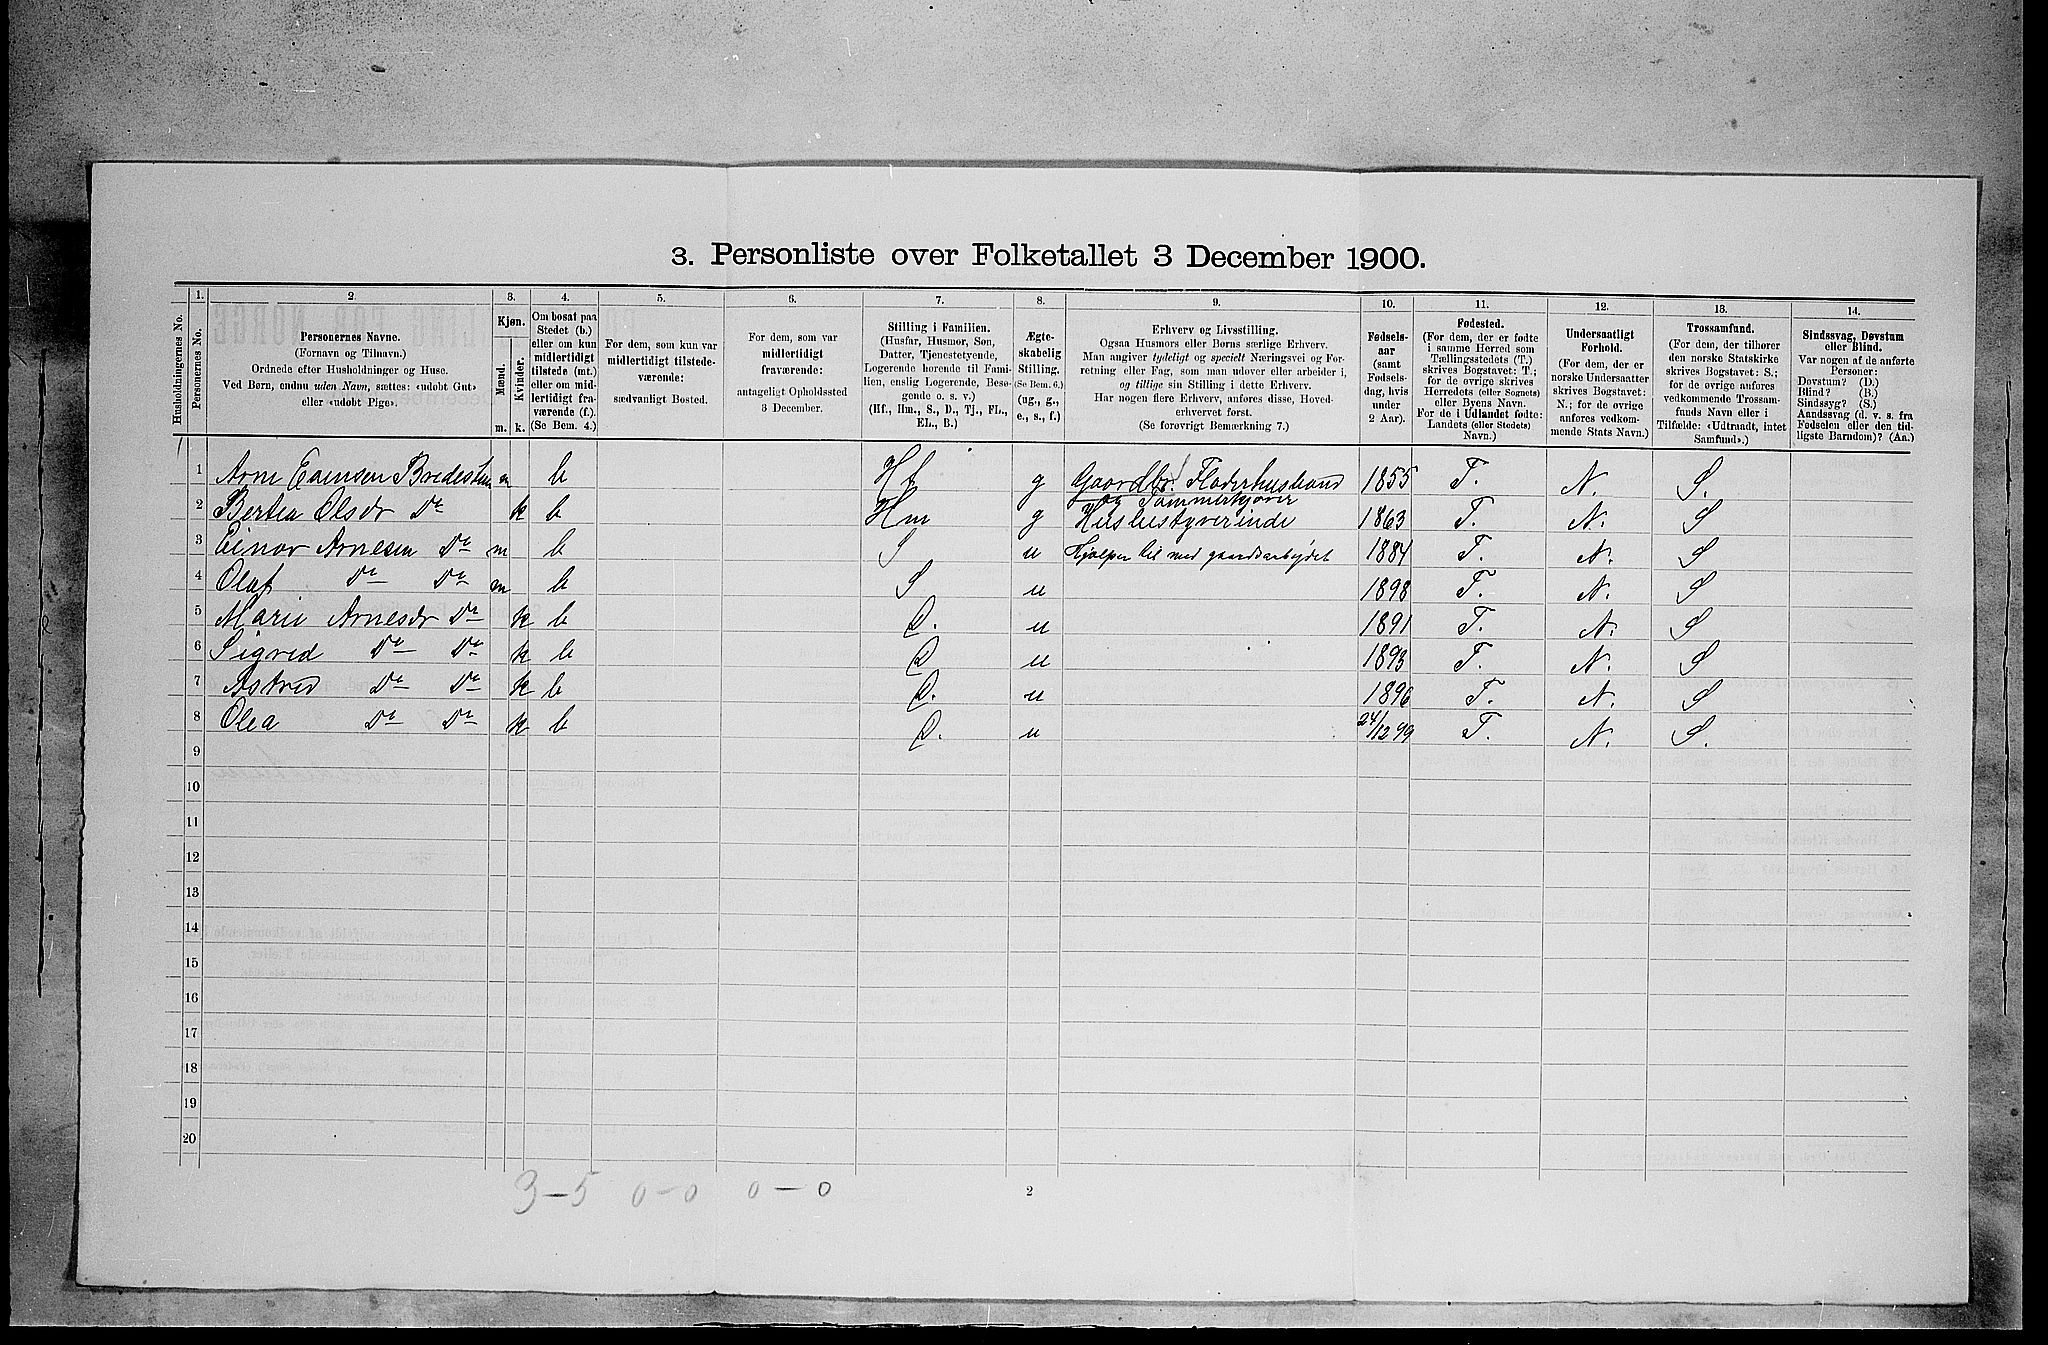 3. Personliste over Folketallet 3 December 1900.
1. 2. 3. 4. 5. 6. 7. 8. 9. 10. 11. 12. 13. 14.
Husholdningernes No.
Personernes No.
Personernes Navne.
(Fornavn og Tilnavn.)
Ordnede efter Husholdninger og Huse.
Ved Børn, endnu uden Navn, sættes: «udøbt Gut»
eller «udøbt Pige».
Kjøn.
Mænd.
Kvinder.
m. k.
Om bosat paa
Stedet (b.)
eller om kun
midlertidigt
tilstede (mt.)
eller om mid-
lertidigt fra-
værende (f.).
(Se Bem. 4.)
For dem, som kun var
midlertidigt tilstede-
værende:
sædvanligt Bosted.
For dem, som var
midlertidigt
fraværende:
antageligt Opholdssted
3 December.
Stilling i Familien.
(Husfar, Husmor, Søn,
Datter, Tjenestetyende,
Logerende hørende til Fami-
lien, enslig Logerende, Besø-
gende o. s. v.)
(Hf., Hm., S., D., Tj., FL.,
EL., B.)
Ægte-
skabelig
Stilling.
(Se Bem. 6.)
(ug., g.,
e., s., f.)
Erhverv og Livsstilling.
Ogsaa Husmors eller Børns særlige Erhverv.
Man angiver tydeligt og specielt Næringsvei og For-
retning eller Fag, som man udøver eller arbeider i,
og tillige sin Stilling i dette Erhverv.
Har nogen flere Erhverv, anføres disse, Hoved-
erhvervet først.
(Se forøvrigt Bemærkning 7.)
Fødsels-
aar
(samt
Fødsels-
dag, hvis
under
2 Aar).
Fødested.
(For dem, der er fødte
i samme Herred som
Tællingsstedets (T.)
skrives Bogstavet: T.;
for de øvrige skrives
Herredets (eller Sognets)
eller Byens Navn.
For de i Udlandet fødte:
Landets (eller Stedets)
Navn.)
Undersaatligt
Forhold.
(For dem, der er
norske Undersaatter
skrives Bogstavet:
N.; for de øvrige
anføres vedkom-
mende Stats Navn.)
Trossamfund.
(For dem, der tilhører
den norske Statskirke
skrives Bogstavet: S.;
for de øvrige anføres
vedkommende Trossam-
funds Navn eller i
Tilfælde: «Udtraadt, intet
Samfund».)
Sindssvag, Døvstum
eller Blind.
Var nogen af de anførte
Personer:
Døvstum? (D.)
Blind? (B.)
Sindssyg? (S.)
Aandssvag (d. v. s. fra
Fødselen eller den tid-
ligste Barndom)? (Aa.)
1 Arne Bredes m b Hf g Gaardbr. 1855 T. N. S.
og Tømmerkjører
2 Bertea Olsdr Do k b Hm g 1863 T. N. S
3 Einar Arnesen Do m b S u Hjælper til med gaardsarbejdet 1884 T. N. S
4 Olaf Do Do m b S u 1898 T. N. S
5 Marie Arnesdr Do k b D. u 1891 T. N. S
6 Sigred Do Do k b D u 1893 T. N. S
7 Astrid Do Do k b D. u 1896 T. N. S
8 Olea Do Do k b D. u 24/12 99 T. N. S.
9
10
11
12
13
14
15
16
17
18
19
20
3-5 0-0 0-0
2